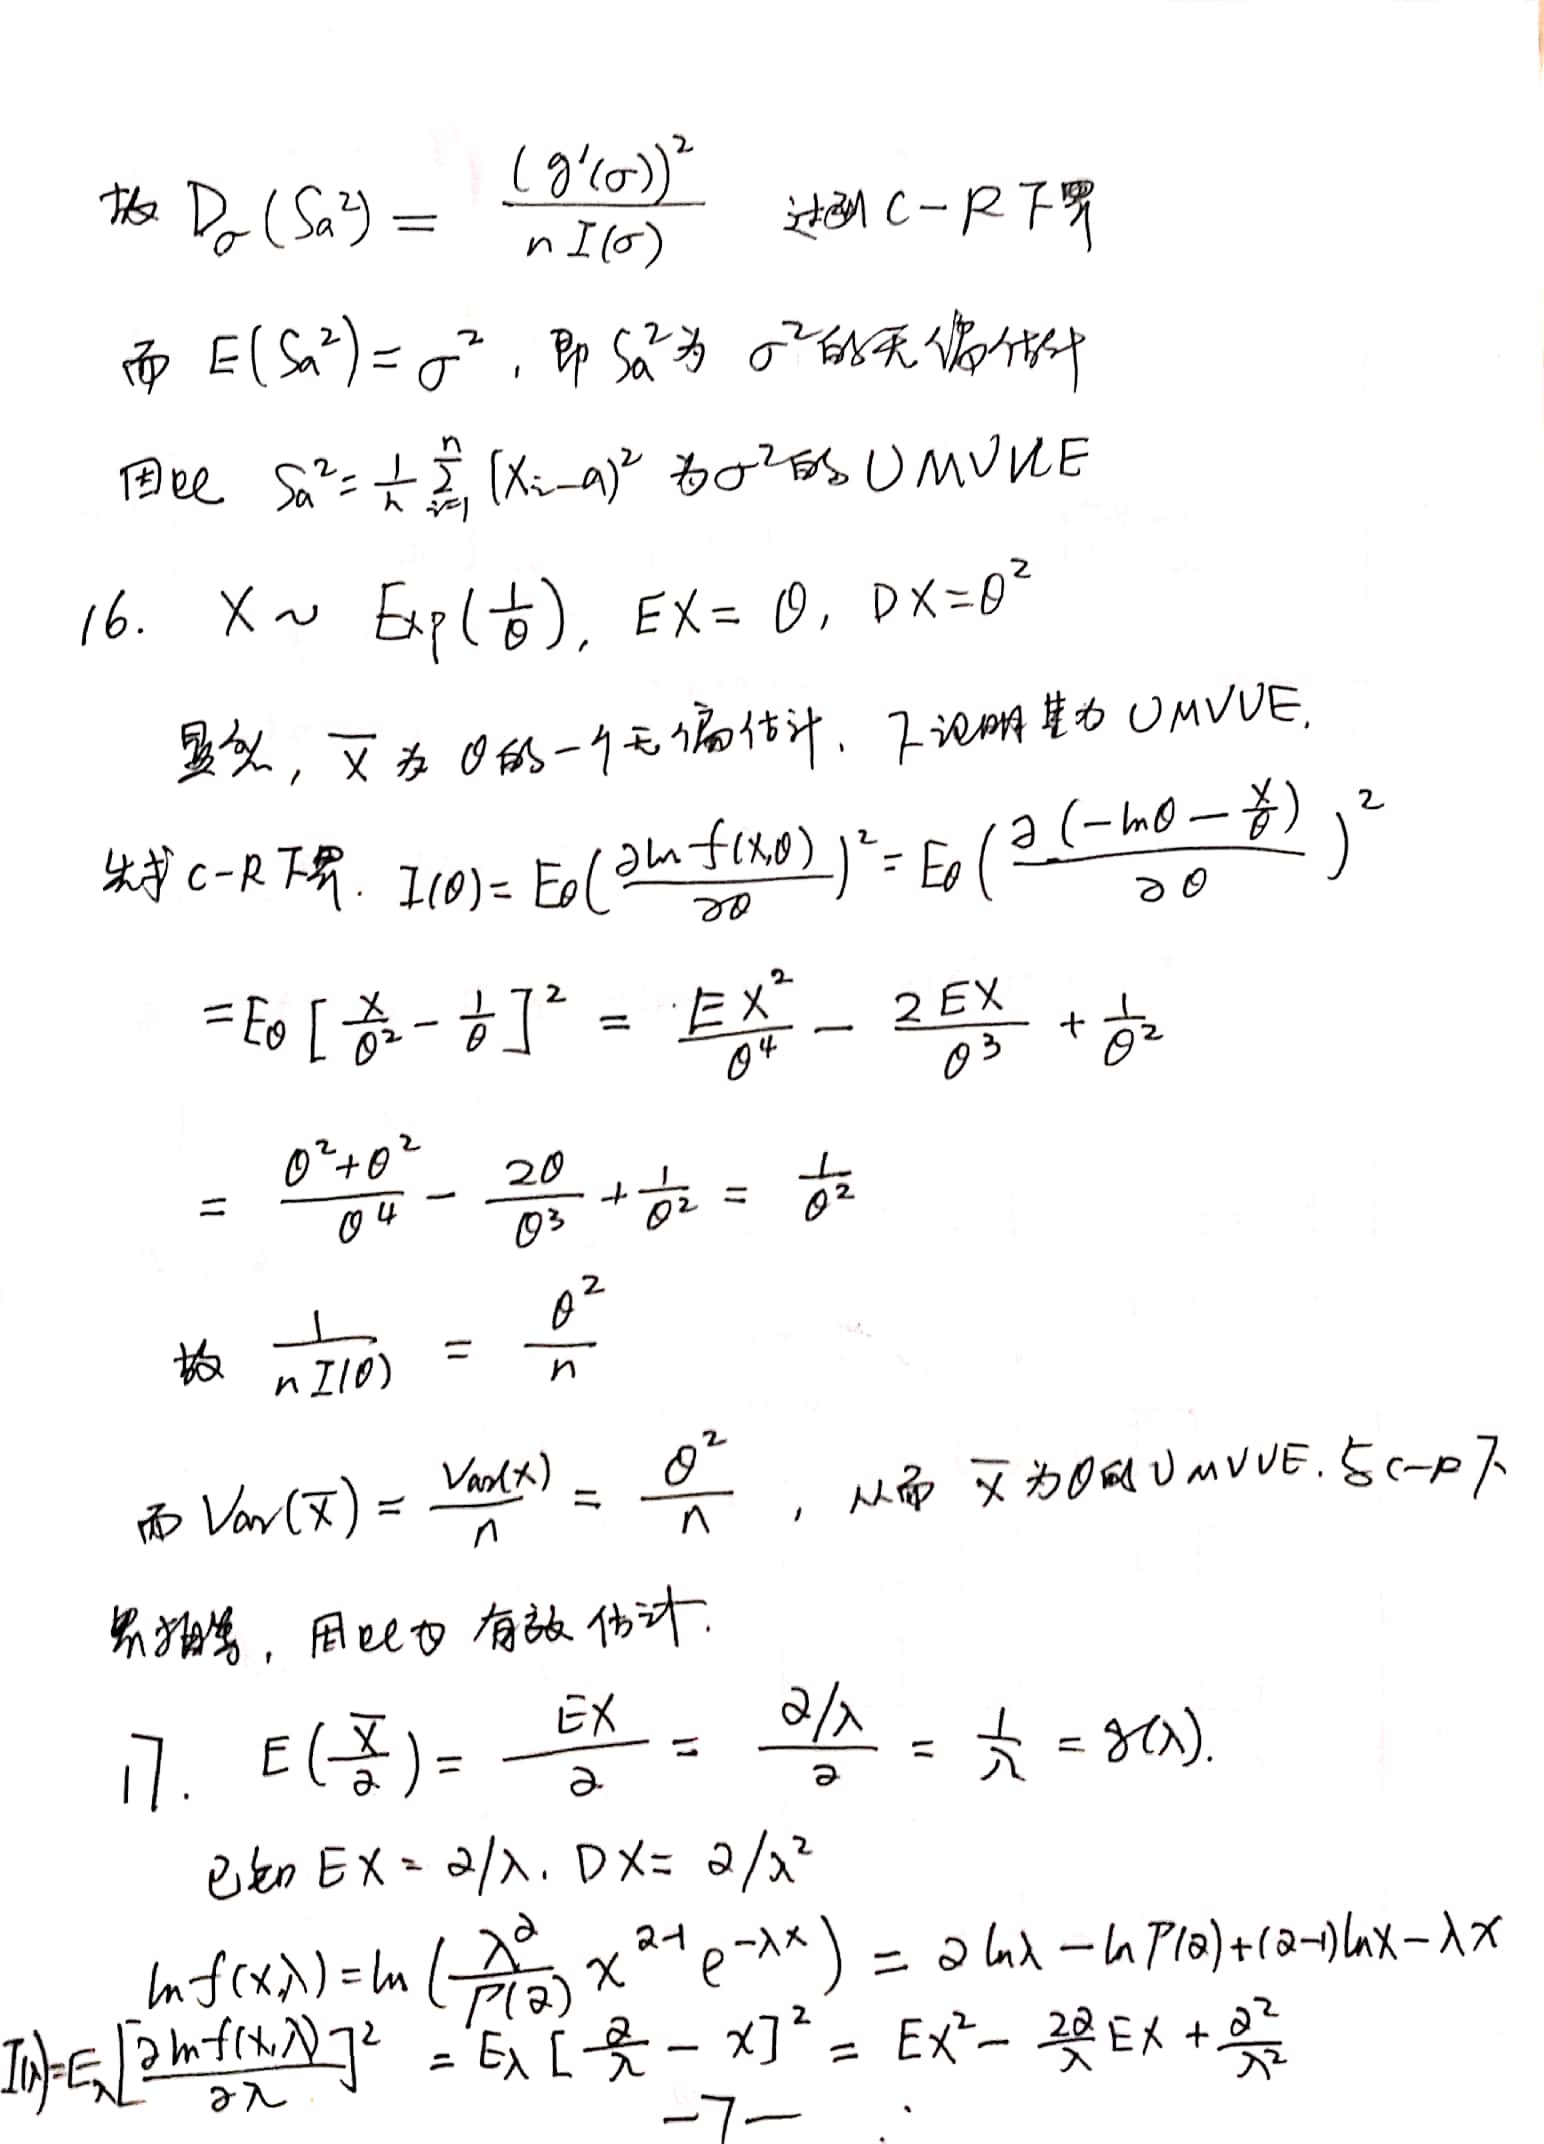 故 D_σ(Sa²) = (g'(σ))² / (n I(σ)) 达到 C-R 下界
而 E(Sa²) = σ², 即 Sa² 为 σ² 的无偏估计
因此 Sa² = 1/n ∑_{i=1}^{n} (Xi-a)² 为σ²的 UMVUE
16. X ~ Exp(1/θ), EX = θ, DX = θ²
显然, X̄ 为 θ的一个无偏估计, 下说明其为 UMVUE.
先求 C-R 下界. I(θ) = E_θ(∂ln f(x,θ)/∂θ)² = E_θ(∂(-lnθ - x/θ)/∂θ)²
= E_θ[x/θ² - 1/θ]² = EX²/θ⁴ - 2EX/θ³ + 1/θ²
= (θ²+θ²)/θ⁴ - 2θ/θ³ + 1/θ² = 1/θ²
故 1/(n I(θ)) = θ²/n
而 Var(X̄) = Var(X)/n = θ²/n, 从而 X̄ 为θ的UMVUE. 与C-R下
界相等, 因此为 有效估计.
17. E(X̄/α) = EX/α = (α/λ)/α = 1/λ = g(λ).
已知 EX = α/λ, DX = α/λ²
ln f(x,λ) = ln(λ^α/Γ(α) x^{α-1} e^{-λx}) = α lnλ - ln Γ(α) + (α-1)lnx - λx
I(λ) = E_λ[∂ln f(x,λ)/∂λ]² = E_λ[α/λ - x]² = EX² - 2α/λ EX + α²/λ²
-7-